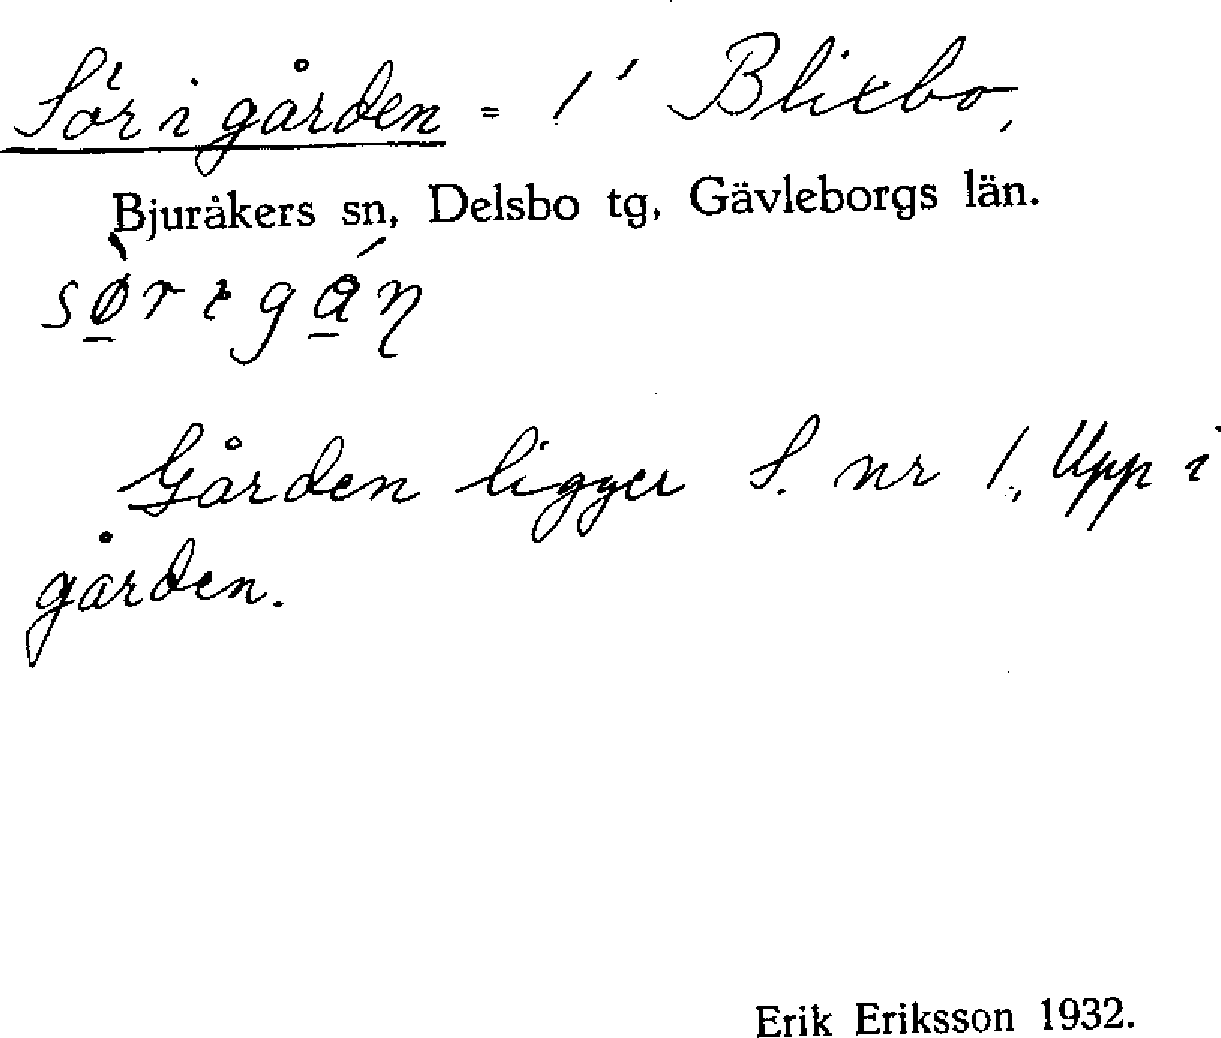 Sör i gården = 1' Blixbo,
Bjuråkers sn, Delsbo tg, Gävleborgs län.
sø̀r ɩ gán
Gården ligger S. nr 1, Upp i
gården.
Erik Eriksson 1932.